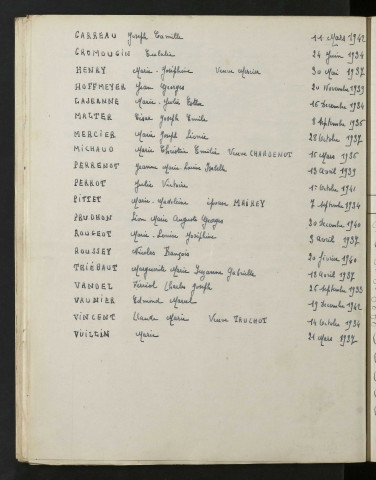 CARREAU Joseph Camille 11 Mars 1942
CROMOUGIN Eulalie 24 Juin 1934
HENRY Marie-Joséphine Veuve Mercier 30 Mai 1937
HOFFMEYER Jean Georges 20 Novembre 1939
LAJEANNE Marie-Julie 16 Décembre 1934
MALTER Joseph Emile 2 Septembre 1936
MERCIER Marie Joseph Léonie 28 Octobre 1937
MICHAUD Marie Christin Emilie Veuve CHARDENOT 15 Mars 1936
PERRENOT Jeanne Marie Louise 13 Avril 1939
PERROT Julie Victoire 1er Octobre 1941
PITTET Marie-Madeleine épouse MAIREY 7 Septembre 1934
PRUDHON Léon Marie Auguste Georges 20 Décembre 1940
ROUGEOT Marie-Louise Joséphine 3 Avril 1937
ROUSSEY Nicolas François 20 Février 1940
THIÉBAUT Marguerite Marie Suzanne Gabrielle 18 Avril 1937
VANDEL Ferréol Charles Joseph 25 Septembre 1933
VAUNIER Edmond Marcel 19 Décembre 1942
VINCENT Claude Marie Veuve TRUCHOT 14 Octobre 1934
VUILLIN Marie 21 Mars 1937